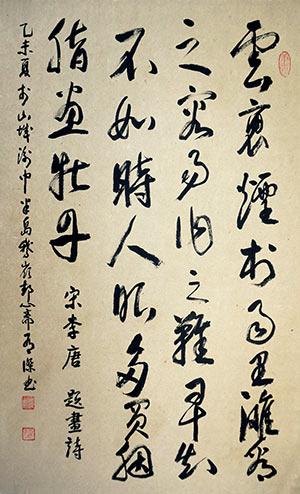 雲裏煙村雨里灘看
之容易作之難早知
不如時人眼多買胭
脂畫牡丹
宋李唐 題畫詩
乙未夏於山城渝中半島